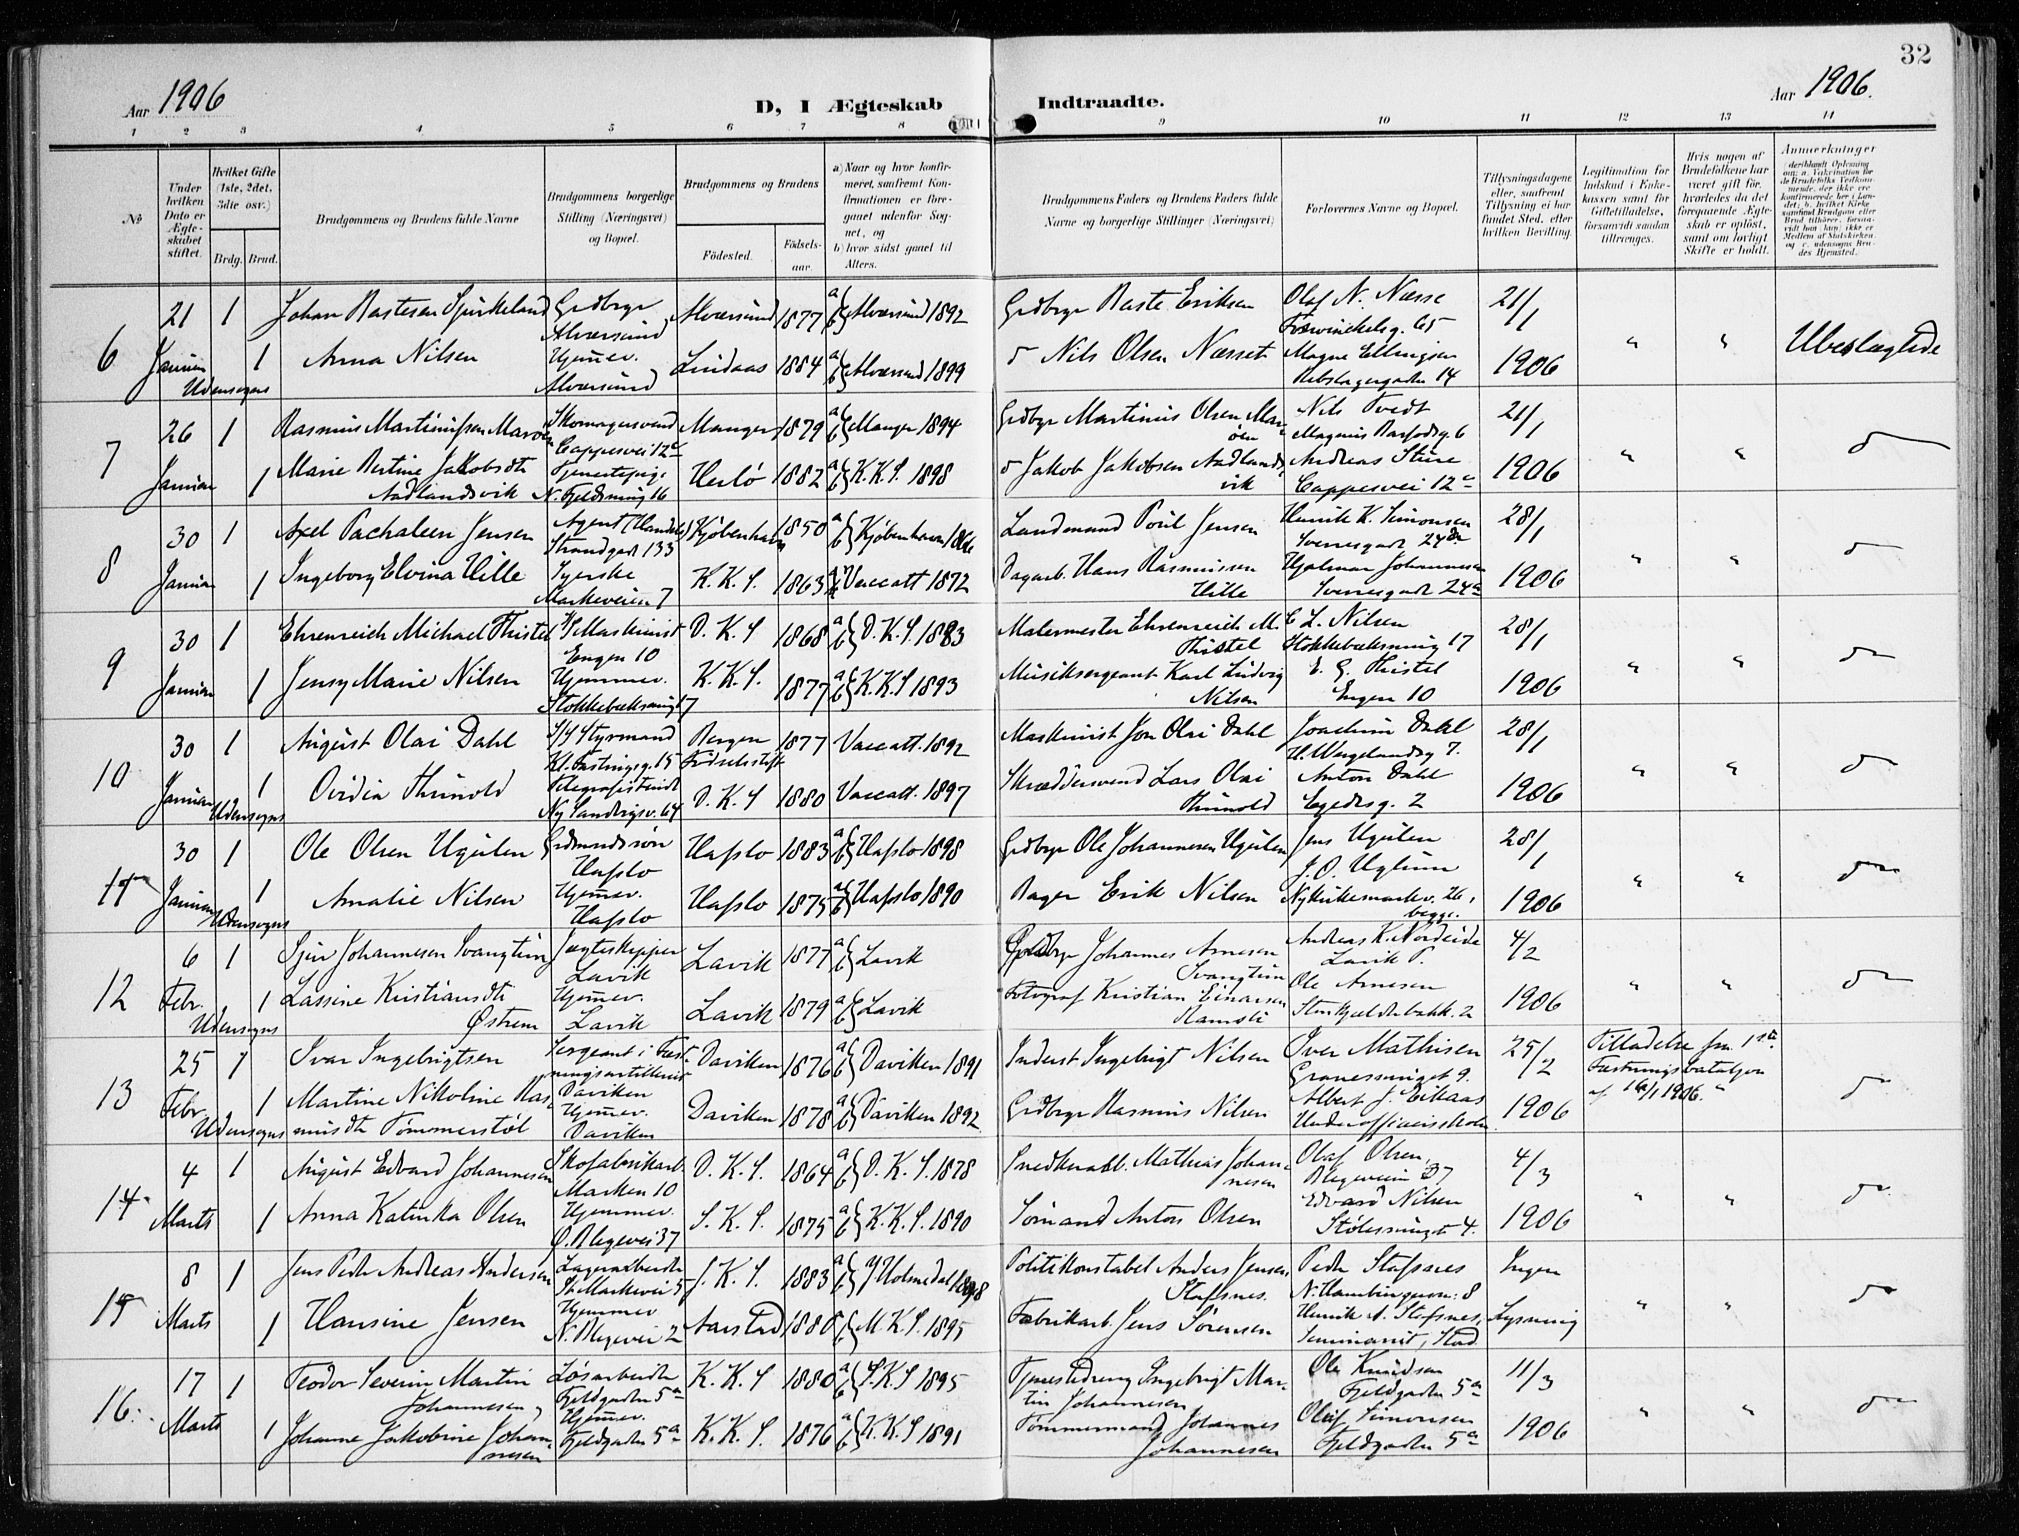 32
Aar 1906
D, I Ægteskab Indtraadte.
Aar 1906.
1 2 3 4 5 6 7 8 9 10 11 12 13 14
No
Under hvilken Dato er Ægteskabet stiftet.
Hvilket Gifte (1ste, 2det, 3die osv.)
Brdg. Brud.
Brudgommens og Brudens fulde Navne
Brudgommens borgerlige Stilling (Næringsvei) og Bopæl.
Brudgommens og Brudens
Fødested.
Fødselsaar.
a) Naar og hvor konfirmeret, saafremt Konfirmationen er foregaaet udenfor Sognet, og
b) hvor sidst gaaet til Alters.
Brudgommens Faders og Brudens Faders fulde Navne og borgerlige Stillinger (Næringsvei)
Forlovernes Navne og Bopæl.
Tillysningsdagene eller, saafremt Tillysning ei har fundet Sted, efter hvilken Bevilling.
Legitimation for Indskud i Enkekassen samt for Giftetilladelse, forsaavidt saadan tiltrænges.
Hvis nogen af Brudefolkene har været gift før, hvorledes da det foregaaende Ægteskab er opløst, samt om lovligt Skifte er holdt.
Anmærkninger
6 21 Januar 1 Johan Rastesen Spirkeland Grdbrgr Alversund Alversund 1877 a b Alversund 1892 Grdbrgr Raste Eriksen Olaf N. Næsse 21/1
1 Anna Nilsen Hjemmev. Alversund Lindaas 1884 a b Alversund 1899 d Nils Olsen Næsset Magne Ellingsen Rebslagergaden 14 1906 " " Ubeslægtede
Udensogns
7 26 Januar 1 Rasmus Martinussen Marøen Skomagersvend Cappesvei 12c Manger 1879 a b Manger 1894 Grdbgr Martinus Olsen Marøen Nils Tvedt Magnus Barfodsg. 6 21/1
1 Marie Bertine Jakobsdtr Aadlandsvik Tjenestepige N. Fjeldsmug 16 Herlø 1882 a b K.K.S. 1898 d Jakob Jakobsen Aadlandsvik Andreas Sture Cappesvei 12c 1906 " " do
8 30 Januar 1 Axel Pachaleen Jensen Agent (Handels) Strandgad 133 Kjøbenhavn 1850 a b Kjøbenhavn 1866 Landmand Poul Jensen Henrik K. Simonsen Sverresgade 24a 28/1
1 Ingeborg Elvina Hille Syerske Markeveien 7 K.K.S. 1863 Vaccatt 1872 Dagarb. Hans Rasmussen Hille Hjalmar Johannesen Sverresgade 24a 1906 " " do
9 30 Januar 1 Ehrenreich Michael Thistel Maskinist Engen 10 D.K.S 1868 a b D.K.S. 1883 Malermester Ehrenreich M. Thistel C L. Nilsen Stokkebæksmug 17 28/1
1 Jensy Marie Nilsen Hjemmev. Stokkebæksmug 17 K.K.S. 1877 a b K.K.S 1893 Musiksergeant Karl Ludvig Nilsen E. G. Thistel Engen 10 1906 " " do
10 30 Januar 1 August Olai Dahl Styrmand Kl. Fastingsg. 15 Bergen Fødselsstift 1877 Vaccatt. 1892 Maskinist Jon Olai Dahl Joachim Dahl H. Wergelandsg 7. 28/1
1 Ovidia Thunold Telegrafistinde Ny Sandvigsv. 64 D.K.S 1880 Vaccatt. 1897 Skræddersvend Lars Olai Thunold Anton Dahl Egedesg. 2 1906 " " do
Udensogns
11 30 Januar 1 Ole Olsen Ugulen Grdmandssøn Hafslo Hafslo 1883 a b Hafslo 1898 Grdbgr Ole Johannesen Ugulen Jens Ugulen 28/1
1 Amalie Nilsen Hjemmev. Hafslo Hafslo 1875 a b Hafslo 1890 Bager Erik Nilsen J.O. Uglum Nykirkemarkev. 26, begge. 1906 " " do
Udensogns
12 6 Febr. 1 Sjur Johannesen Svangtun Jægteskipper Lavik Lavik 1877 a b Lavik Grdbrgr Johannes Arnesen Svangtun Andreas K. Nordeide Lavik P. 4/2
1 Lassine Kristiansdtr Østrem Hjemmev. Lavik Lavik 1879 a b Lavik Fotograf Kristian Einarsen Ramsli Ole Arnesen Stenkjeldebakk. 2 1906 " " do
Udensogns
13 25 Febr. 1 Ivar Ingebrigtsen Sergeant i Fæstningsartilleriet Daviken Daviken 1876 a b Daviken 1891 Inderst Ingebrigt Nilsen Iver Mathisen Gronessmuget 9. 25/2 Tilladelse fra 1ste Fæstningsbataljon af 16/1 1906. "
1 Martine Nikoline Rasmusdtr Tømmerstøl Hjemmev. Daviken Daviken 1878 a b Daviken 1892. Grdbrgr Rasmus Nilsen Albert J. Eikaas Underofficersskolen. 1906 do
Udensogns
14 4 Marts 1 August Edvard Johannesen Skofabrikarb. Marken 10 D.K.S. 1864 a b D.K.S. 1878 Snedkerarb. Mathias Johannesen Olaf Olsen, Blegeveien 37 4/3
1 Anna Katinka Olsen Hjemmev. Ø. Blegevei 37 S.K.S. 1875 a b K.K.S. 1890 Sømand Anton Olsen Edvard Nilsen Stølessmuget 4. 1906 " " do
15 8 Marts 1 Jens Peder Andreas Andersen Lagerarbeider St. Markevei 5 J.K.S. 1883 a b Holmedal 1898 Politikonstabel Anders Jensen Stafsnes. Peder Stafsnes N. Hamburgerv: 8 Ingen
1 Hansine Jensen Hjemmev N. Blegevei 2 Aarstad 1880 a b M.K.S. 1895 Fabrikarb. Jens Sørensen Henrik A. Stafsnes, Seminarist, Stad. Lysning " " do
16. 17 Marts 1 Teodor Severin Martin Johannesen, Løsarbeider Fjeldgaden 5a K.K.S 1880 a b S.K.S 1895 Tjenestedreng Ingebrigt Martin Johannesen Ole Knudsen Fjeldgaden 5a 11/3
1 Johanne Jakobine Johannesen Hjemmev. Fjeldgaden 5a K.K.S. 1876 a b K.K.S 1891 Tømmermand Johannes Johannesen Oluf Simonsen Fjeldgaden 5a 1906 " " do